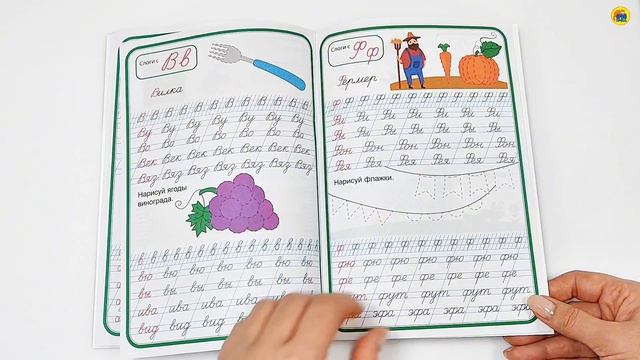 Слоги с В в
Вилка
В В В В В В В В В В В
Ву Ву Ву Ву Ву Ву
Во Во Во Во Во Во
Век Век Век Век Век Век
Вяз Вяз Вяз Вяз Вяз Вяз
Нарисуй ягоды
винограда.
в в в в в в в в в в в в
вю вю вю вю вю вю
вы вы вы вы вы вы
ива ива ива ива ива
вид вид вид вид
Слоги с Ф ф
Фермер
Ф Ф Ф Ф Ф Ф Ф Ф Ф
Фи Фи Фи Фи Фи Фи
Фы Фы Фы Фы Фы Фы
Фон Фон Фон Фон Фон
Фея Фея Фея Фея Фея
Нарисуй флажки.
ф ф ф ф ф ф ф ф ф ф
фю фю фю фю фю фю
фе фе фе фе фе фе
фут фут фут фут фут
эфа эфа эфа эфа эфа эфа